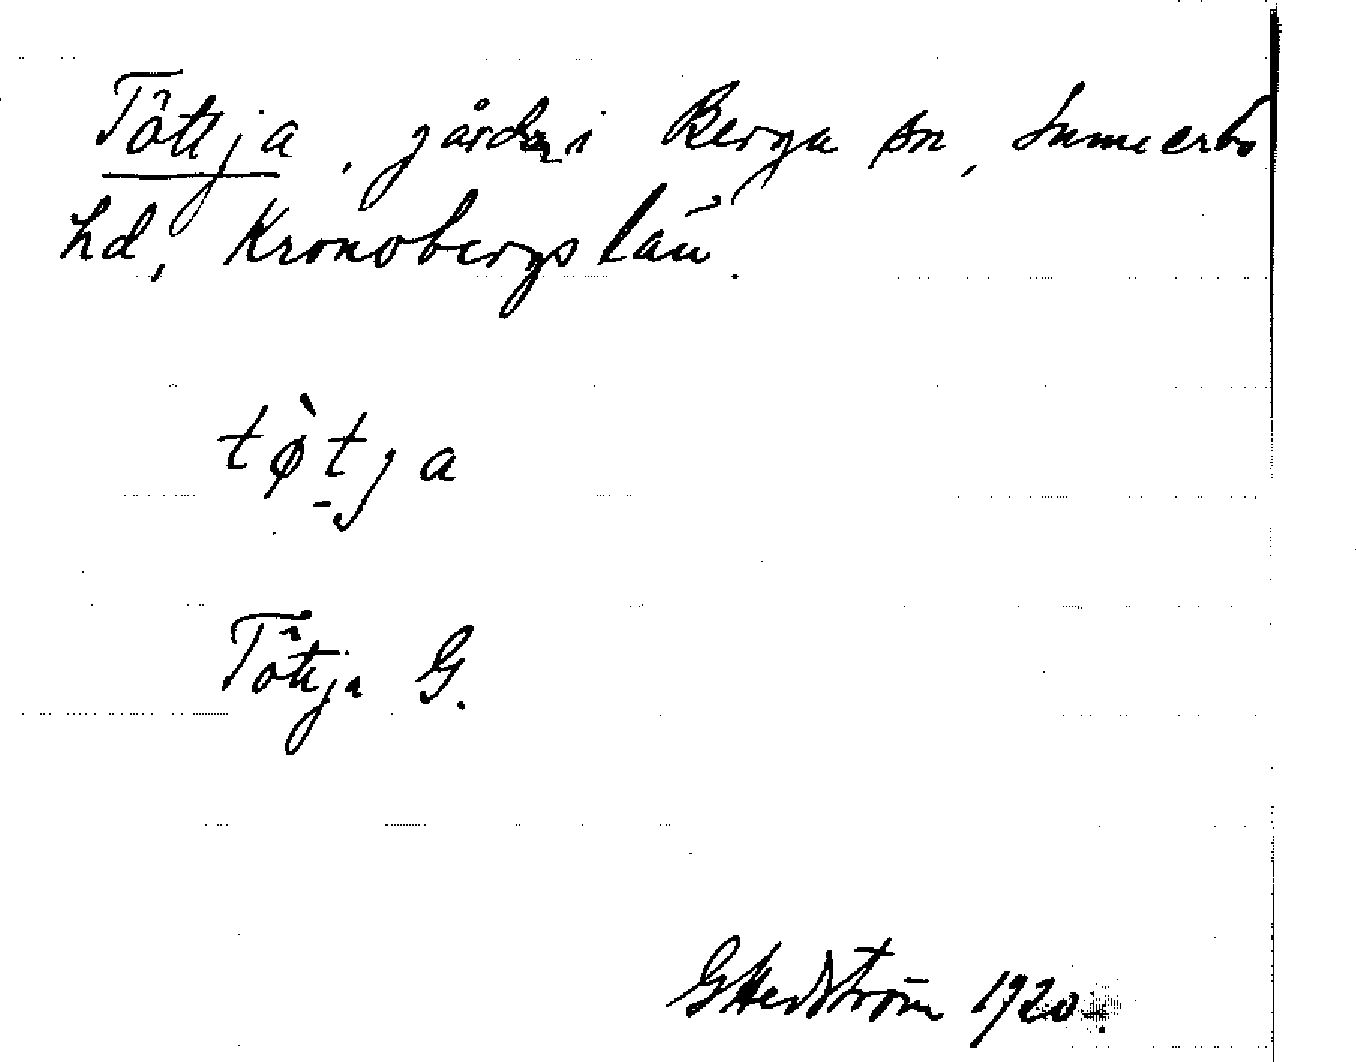 Töttja, gårdar i Berga sn, Sunnerbo
hd, Kronobergs län.
tø̀tja
Töttja G.
G Hedström 1920